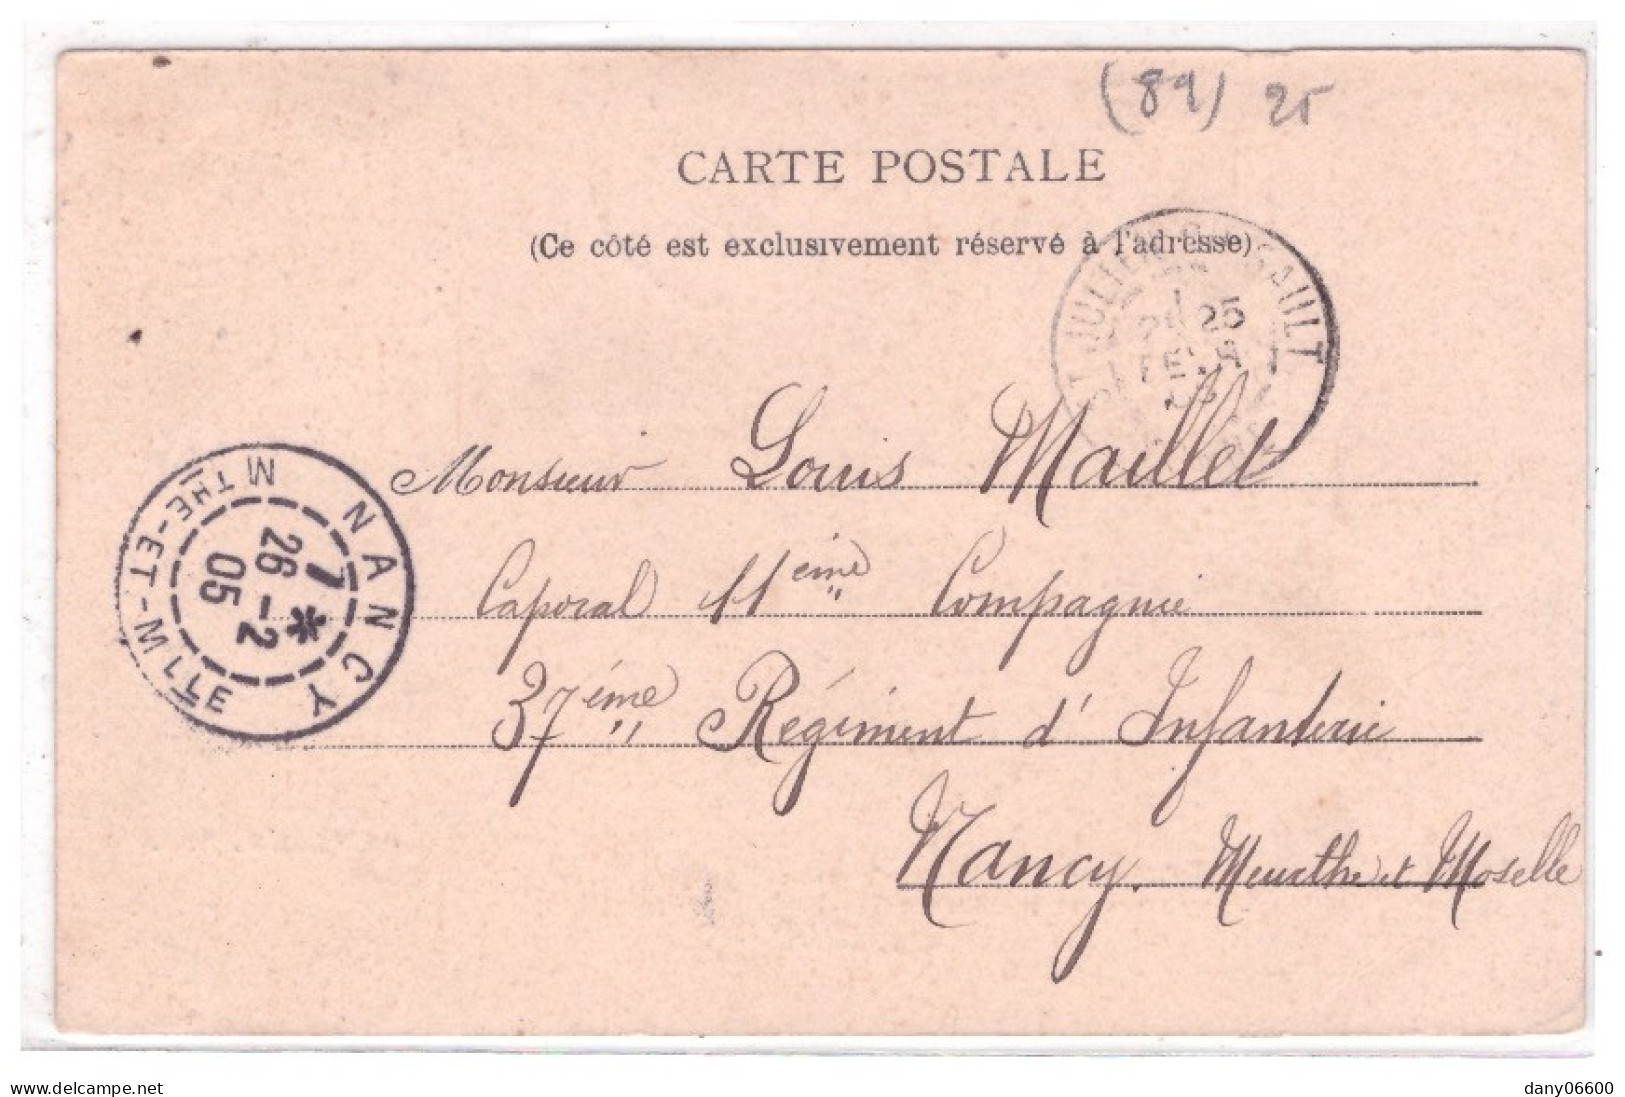 (89) 25
CARTE POSTALE
(Ce côté est exclusivement réservé à l'adresse)
ST JULIEN DU SAULT
25
FEVR
Monsieur Louis Maillet
Caporal 11ème Compagnie
37ème Régiment d'Infanterie
Nancy. Meurthe et Moselle
NANCY
MTHE-ET-MLLE
7 *
26 -2
05
www.delcampe.net
dany06600